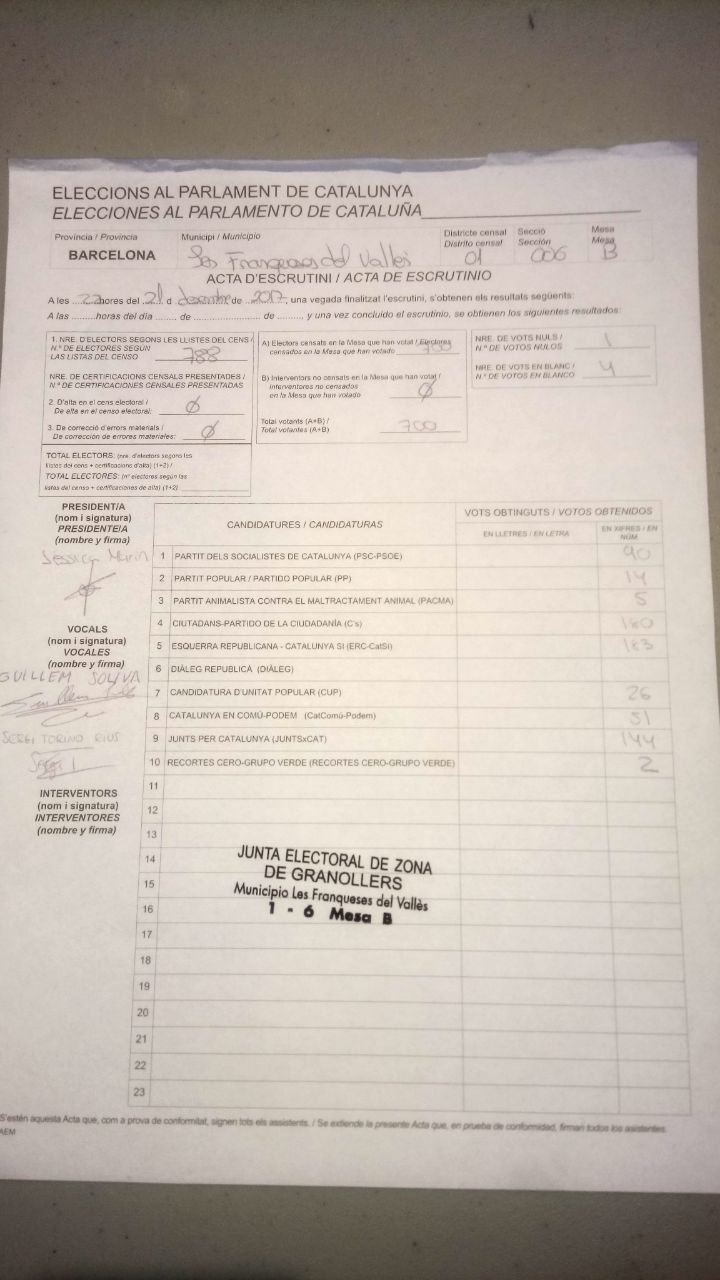 ELECCIONS AL PARLAMENT DE CATALUNYA
ELECCIONES AL PARLAMENTO DE CATALUÑA
Provincia / Provincia Municipi / Municipio Districte censal Secció Mesa
Distrito censal Sección Mesa
BARCELONA Les Franqueses del Vallès 01 006 B
ACTA D'ESCRUTINI / ACTA DE ESCRUTINIO
A les ....22hores del .21.d desembre de ..2017, una vegada finalitzat l'escrutini, s'obtenen els resultats següents:
A las .......horas del día ....... de ............... de ........., y una vez concluido el escrutinio, se obtienen los siguientes resultados:
1. NRE. D'ELECTORS SEGONS LES LLISTES DEL CENS /
N.º DE ELECTORES SEGÚN
LAS LISTAS DEL CENSO 788
NRE. DE CERTIFICACIONS CENSALS PRESENTADES /
N.º DE CERTIFICACIONES CENSALES PRESENTADAS
2. D'alta en el cens electoral /
De alta en el censo electoral: Ø
3. De correcció d'errors materials /
De corrección de errores materiales: Ø
TOTAL ELECTORS: (nre. d'electors segons les
llistes del cens + certificacions d'alta) (1+2) /
TOTAL ELECTORES: (nº electores según las
listas del censo + certificaciones de alta) (1+2)
A) Electors censats en la Mesa que han votat / Electores
censados en la Mesa que han votado 700
B) Interventors no censats en la Mesa que han votat /
Interventores no censados
en la Mesa que han votado Ø
Total votants (A+B) /
Total votantes (A+B) 700
NRE. DE VOTS NULS /
N.º DE VOTOS NULOS 1
NRE. DE VOTS EN BLANC /
N.º DE VOTOS EN BLANCO 4
PRESIDENT/A
(nom i signatura)
PRESIDENTE/A
(nombre y firma)
Jessica Marin
VOCALS
(nom i signatura)
VOCALES
(nombre y firma)
GUILLEM SOLIVA
SERGI TORINO RIUS
INTERVENTORS
(nom i signatura)
INTERVENTORES
(nombre y firma)
CANDIDATURES / CANDIDATURAS VOTS OBTINGUTS / VOTOS OBTENIDOS
EN LLETRES / EN LETRA EN XIFRES / EN NÚM.
1 PARTIT DELS SOCIALISTES DE CATALUNYA (PSC-PSOE) 90
2 PARTIT POPULAR / PARTIDO POPULAR (PP) 14
3 PARTIT ANIMALISTA CONTRA EL MALTRACTAMENT ANIMAL (PACMA) 5
4 CIUTADANS-PARTIDO DE LA CIUDADANÍA (C's) 180
5 ESQUERRA REPUBLICANA - CATALUNYA SÍ (ERC-CatSí) 183
6 DIÀLEG REPUBLICÀ (DIÀLEG)
7 CANDIDATURA D'UNITAT POPULAR (CUP) 26
8 CATALUNYA EN COMÚ-PODEM (CatComú-Podem) 51
9 JUNTS PER CATALUNYA (JUNTSxCAT) 144
10 RECORTES CERO-GRUPO VERDE (RECORTES CERO-GRUPO VERDE) 2
11
12
13
14
15
16
17
18
19
20
21
22
23
JUNTA ELECTORAL DE ZONA
DE GRANOLLERS
Municipio Les Franqueses del Vallès
1 - 6 Mesa B
S'estén aquesta Acta que, com a prova de conformitat, signen tots els assistents. / Se extiende la presente Acta que, en prueba de conformidad, firman todos los asistentes.
AEM